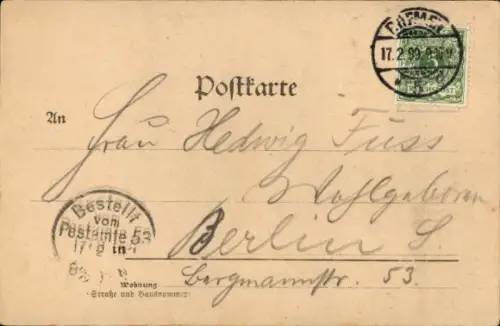 17.2.99
Postkarte
An
Frau Hedwig Fuss
Wohlgeboren
Bestellt
vom
Postamte 53
17/2
in
Berlin S.
Bergmannstr. 53.
Wohnung
Straße und Hausnummer